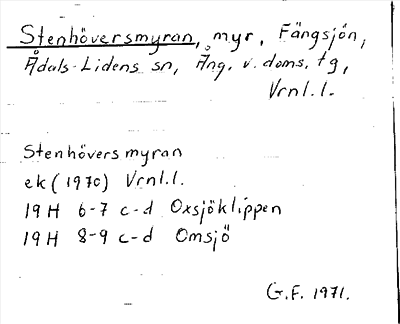 Stenhöversmyran, myr, Fängsjön,
Ådals-Lidens sn, Ång. v. doms. tg,
Vrnl.l.
Stenhöversmyran
ek (1970) Vrnl.l.
19H 6-7 c-d Oxsjöklippen
19H 8-9 c-d Omsjö
G.F. 1971.